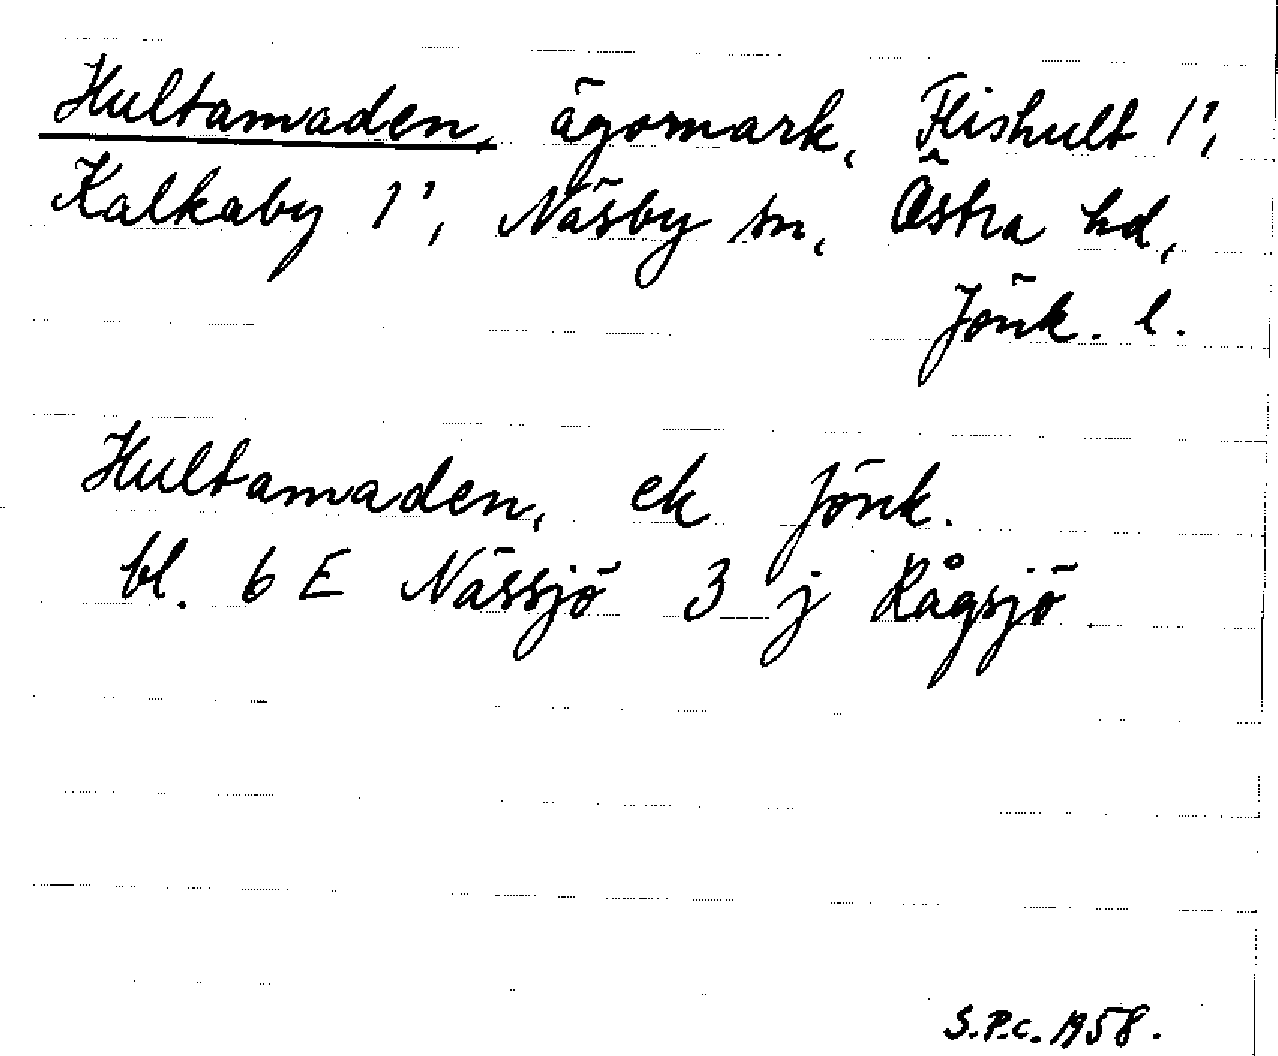 Hultamaden, ägomark, Flishult 1',
Kalkaby 1', Näsby sn, Östra hd,
Jönk. l.
Hultamaden, ek Jönk.
bl. 6 E Nässjö 3 j Rågsjö
S.P.C. 1958.